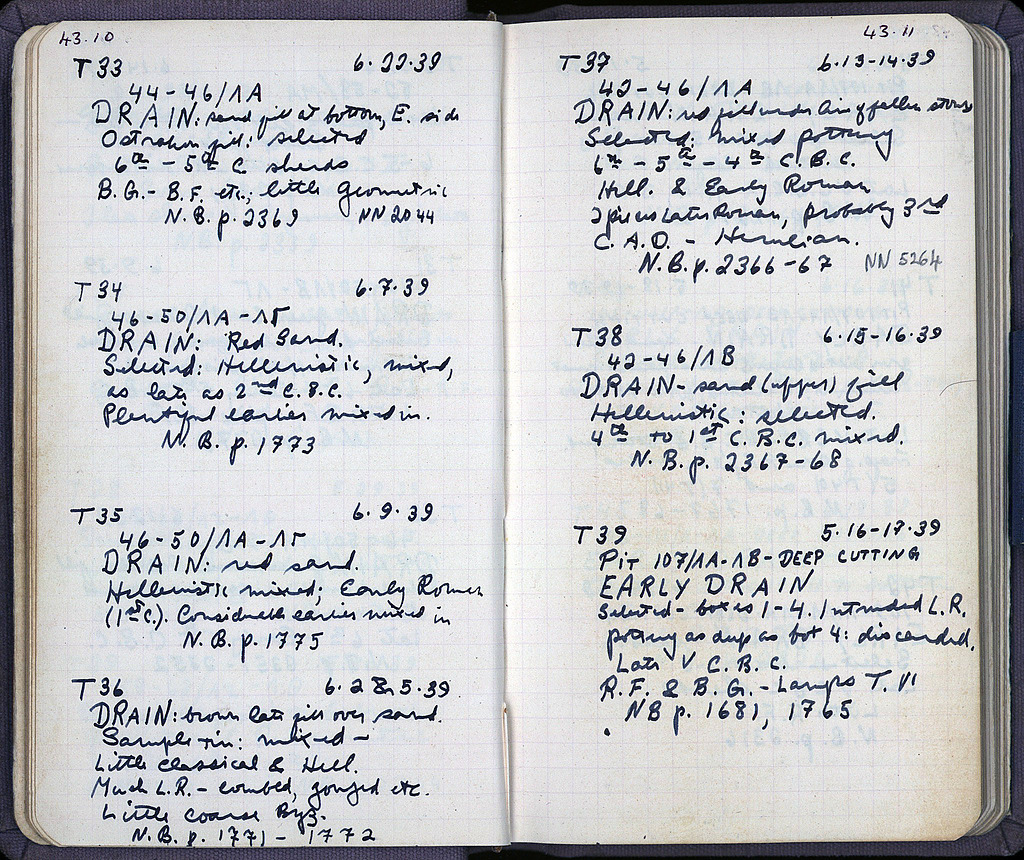 43.10
T 33 6.22.39
44-46/ΛA
DRAIN: sand fill at bottom, E. side
Ostrakon fill: selected
6th - 5th C. sherds
B.G. - B.F. etc; little geometric
N.B. p. 2369 NN 2044
T 34 6.7.39
46-50/ΛA-ΛΓ
DRAIN: Red Sand.
Selected: Hellenistic, mixed,
as late as 2nd C. B.C.
Plentiful earlier mixed in.
N.B. p. 1773
T 35 6.9.39
46-50/ΛA-ΛΓ
DRAIN: red sand.
Hellenistic mixed; Early Roman
(1st C.). Considerable earlier mixed in
N.B. p. 1775
T 36 6.2 & 5.39
DRAIN: brown late fill over sand.
Sample tin: mixed -
Little classical & Hell.
Much L.R. - combed, gouged etc.
Little coarse Byz.
N.B. p. 1771 - 1772
43.11
T 37 6.13-14.39
42-46/ΛA
DRAIN: red fill under fallen stones
Selected: mixed pottery
6th - 5th - 4th C. B.C.
Hell. & Early Roman
2 pieces Later Roman, probably 3rd
C. A.D. - Herulian.
N.B. p. 2366-67 NN 5264
T 38 6.15-16.39
42-46/ΛB
DRAIN - sand (upper) fill
Hellenistic: selected.
4th to 1st C. B.C. mixed.
N.B. p. 2367-68
T 39 5.16-17.39
PIT 107/ΛA-ΛB - DEEP CUTTING
EARLY DRAIN
Selected - boxes 1-4. Intruded L.R.
pottery as deep as bot 4: discarded.
Late V C. B.C.
R.F. & B.G. - Lamps T. VI
NB p. 1681, 1765